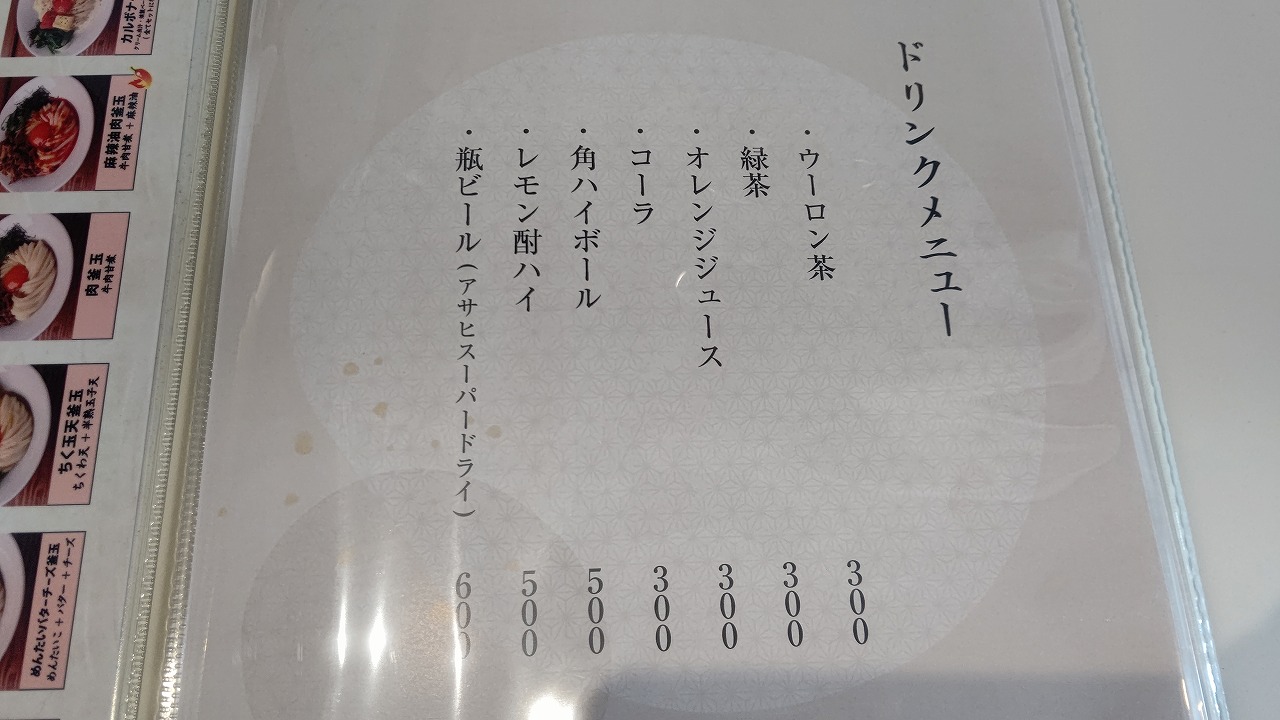 ドリンクメニュー
・ウーロン茶 300
・緑茶 300
・オレンジジュース 300
・コーラ 300
・角ハイボール 500
・レモン酎ハイ 500
・瓶ビール(アサヒスーパードライ) 600
カルボナ
麻辣油肉釜玉
牛肉甘煮 + 麻辣油
肉釜玉
牛肉甘煮
ちく玉天釜玉
ちくわ天 + 半熟玉子天
めんたいバターチーズ釜玉
めんたいこ + バター + チーズ